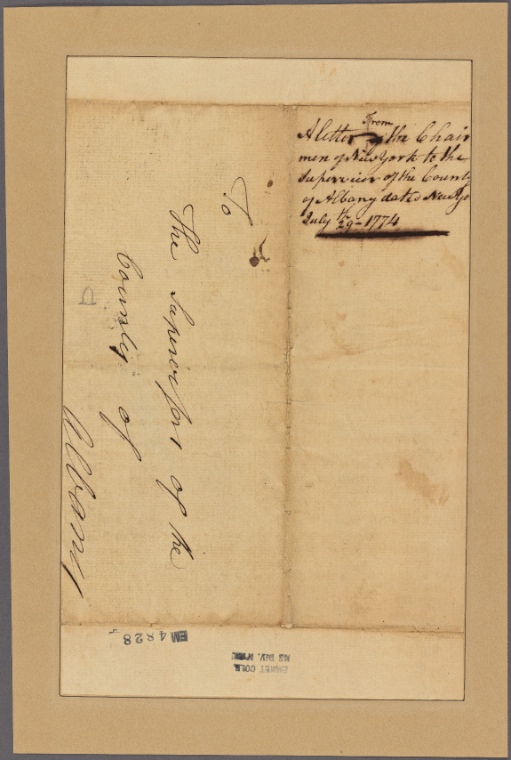 A letter from the Chair
men of New York to the
Supervisor of the County
of Albany dated New Yo
July 29th 1774
To
The Supervisors of the
County of
Albany
D
EM 4828
EMMET COLL.
MS DIV. N